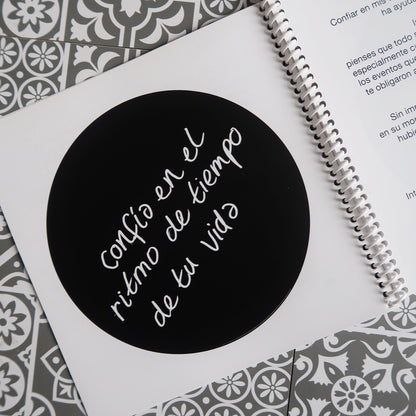 confía en el
ritmo de tiempo
de tu vida
Confiar en mis
ha ayud
pienses que todo
especialmente c
los eventos que
te obligaron
Sin im
en su mo
hubi
Int